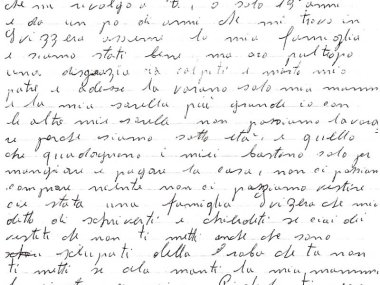 che mi rivolgo a Ti, o solo 13 anni
e da un po di anni che mi trovo in
Svizzera assieme la mia famiglia
e siamo stati bene, ma ora pultropo
una disgrazia ci à colpiti è morto mio
patre e adesso la vorano solo mia mamma
e la mia sarella più grande io con
le altre mie sarelle non possiamo lavora
re perche siamo sotto età, e quello
che quadognano i miei bastano solo per
mangiare e pagare la casa, non ci possiam
comprare niente non ci possiamo vestire
ce stata una famiglia Svizera che mia
detto di schriverti e chiederti se ciai dei
vestiti che non ti metti anche che sono
sciupati della roba che tu non
ti metti se cela manti la mia mamma